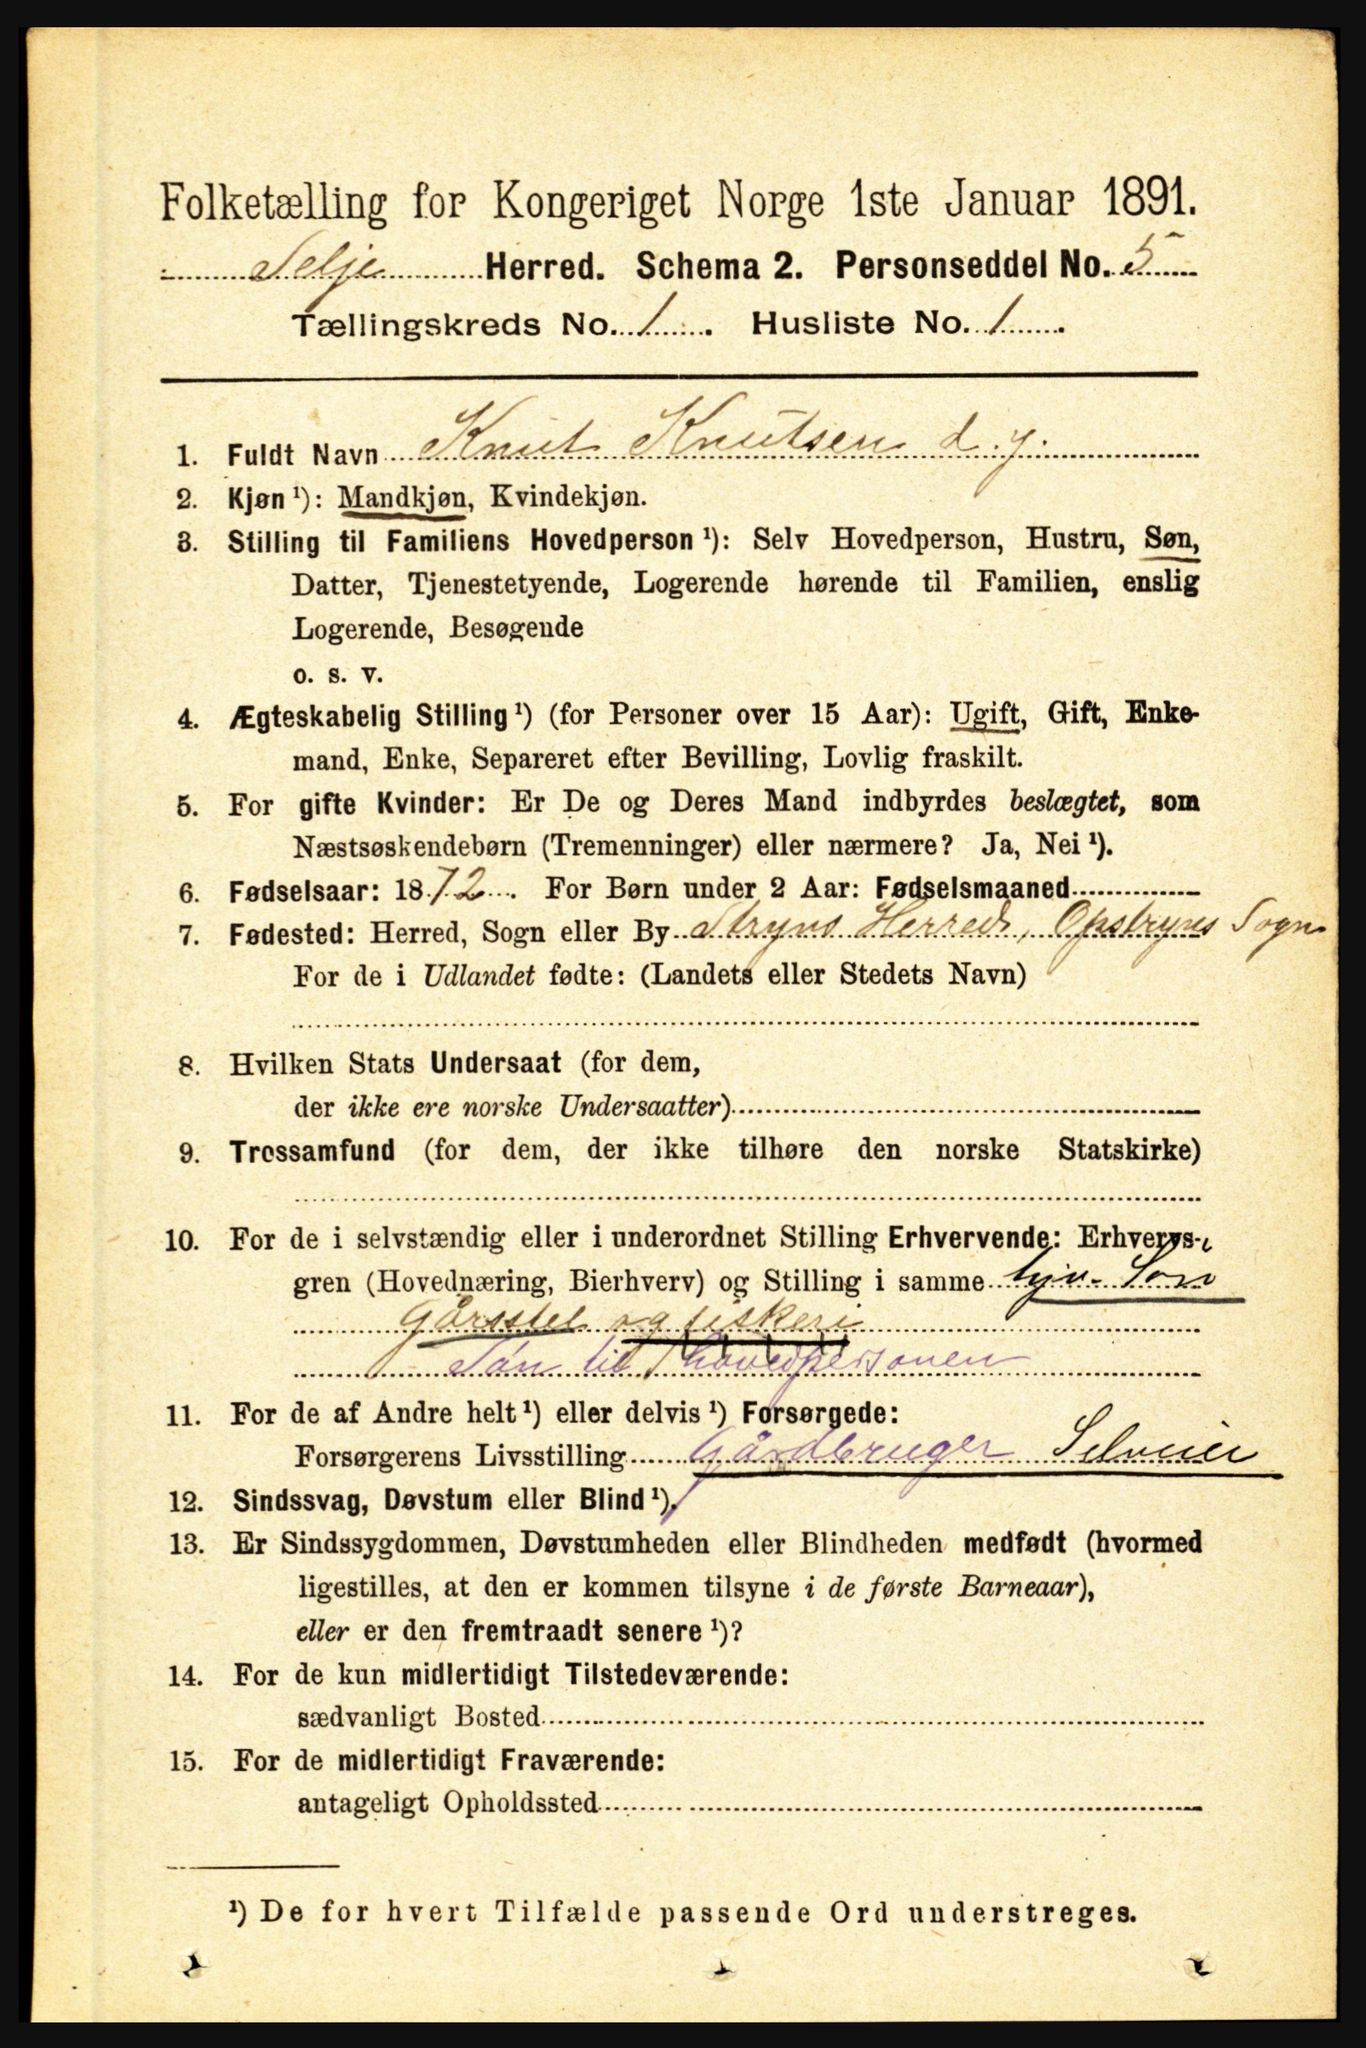 Folketælling for Kongeriget Norge 1ste Januar 1891.
Selje Herred. Schema 2. Personseddel No. 5
Tællingskreds No. 1. Husliste No. 1.
1. Fuldt Navn Knut Knutsen d. y.
2. Kjøn ¹): Mandkjøn, Kvindekjøn.
3. Stilling til Familiens Hovedperson ¹): Selv Hovedperson, Hustru, Søn,
Datter, Tjenestetyende, Logerende hørende til Familien, enslig
Logerende, Besøgende
o. s. v.
4. Ægteskabelig Stilling ¹) (for Personer over 15 Aar): Ugift, Gift, Enke-
mand, Enke, Separeret efter Bevilling, Lovlig fraskilt.
5. For gifte Kvinder: Er De og Deres Mand indbyrdes beslægtet, som
Næstsøskendebørn (Tremenninger) eller nærmere? Ja, Nei ¹).
6. Fødselsaar: 1872. For Børn under 2 Aar: Fødselsmaaned
7. Fødested: Herred, Sogn eller By Stryns Herred, Opstryns Sogn
For de i Udlandet fødte: (Landets eller Stedets Navn)
8. Hvilken Stats Undersaat (for dem,
der ikke ere norske Undersaatter)
9. Trossamfund (for dem, der ikke tilhøre den norske Statskirke)
10. For de i selvstændig eller i underordnet Stilling Erhvervende: Erhvervs-
gren (Hovednæring, Bierhverv) og Stilling i samme Søn
Gårsstel og fiskeri
Søn til hovedpersonen
11. For de af Andre helt ¹) eller delvis ¹) Forsørgede:
Forsørgerens Livsstilling Gårdbruger Selveier
12. Sindssvag, Døvstum eller Blind ¹).
13. Er Sindssygdommen, Døvstumheden eller Blindheden medfødt (hvormed
ligestilles, at den er kommen tilsyne i de første Barneaar),
eller er den fremtraadt senere ¹)?
14. For de kun midlertidigt Tilstedeværende:
sædvanligt Bosted
15. For de midlertidigt Fraværende:
antageligt Opholdssted
¹) De for hvert Tilfælde passende Ord understreges.